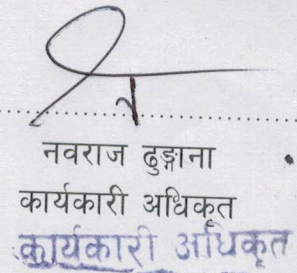 नवराज ढुङ्गाना
कार्यकारी अधिकृत
कार्यकारी अधिकृत